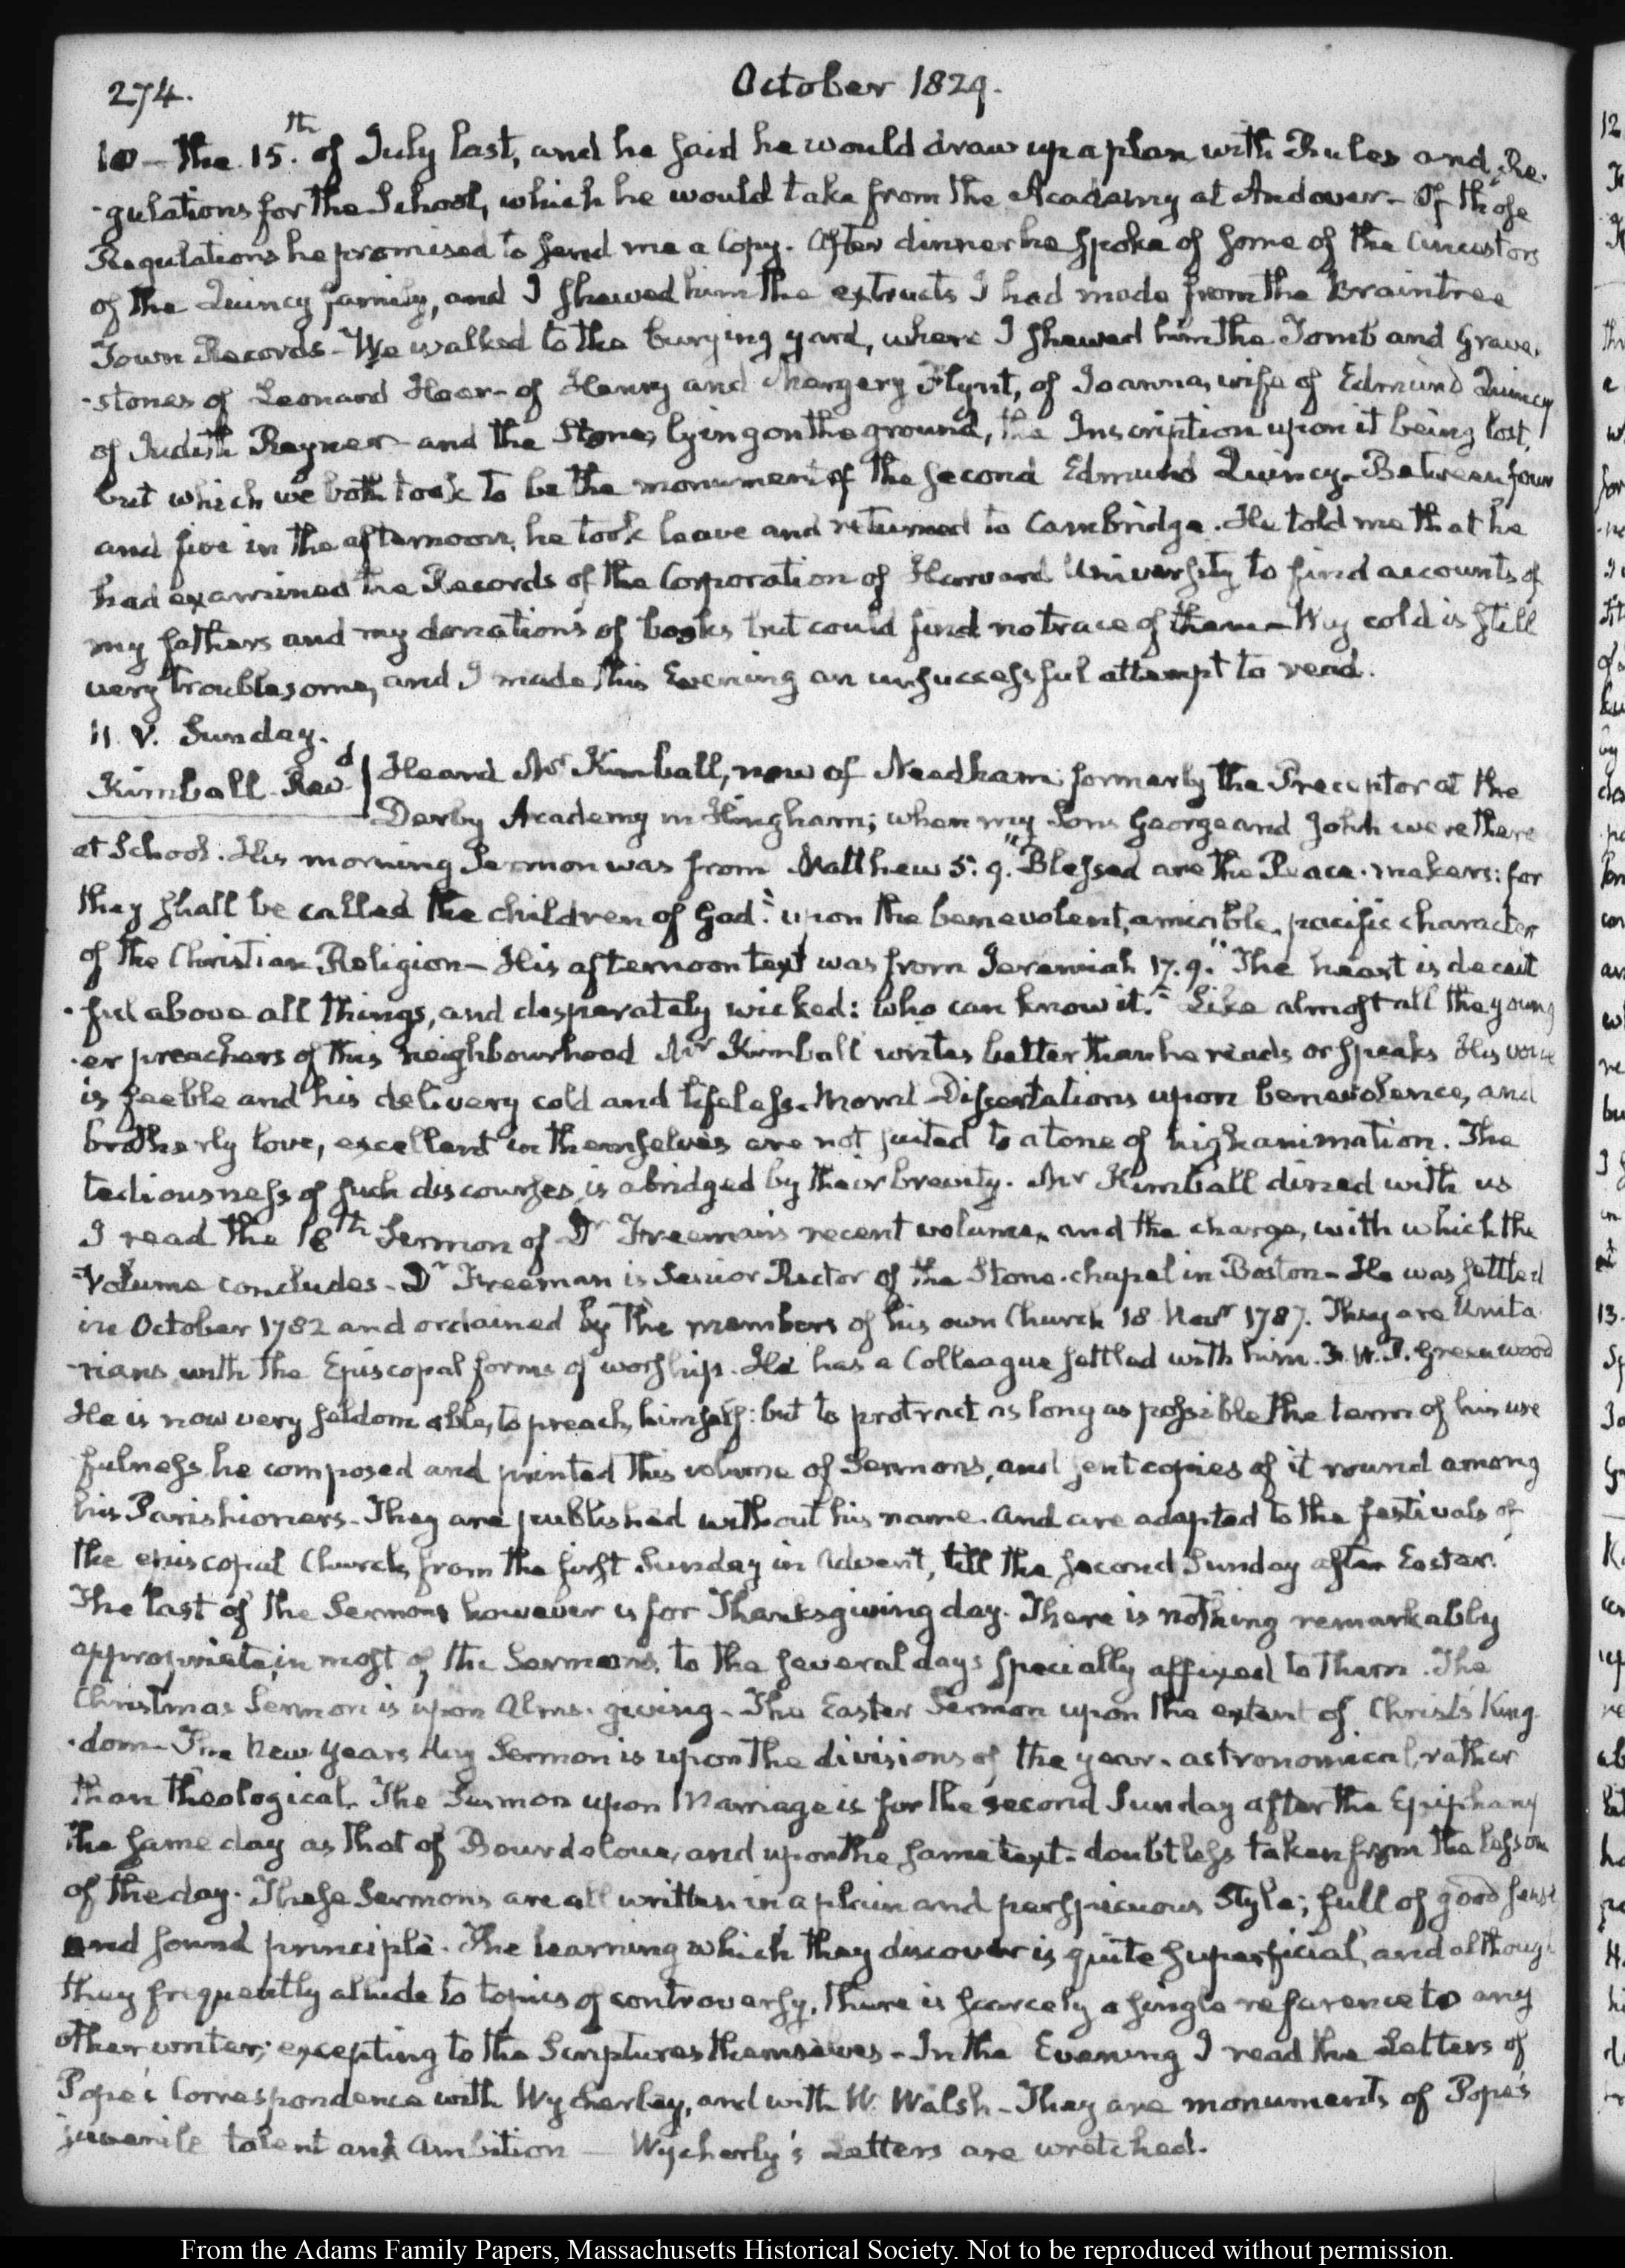 274.
October 1829.
10 - The 15.th of July last, and he said he would draw up a plan with Rules and Re-
-gulations for the School, which he would take from the Academy at Andover - Of those
Regulations he promised to send me a Copy. After dinner he spoke of some of the Ancestors
of the Quincy family, and I shewed him the extracts I had made from the Braintree
Town Records - We walked to the burying yard, where I shewed him the Tomb and Grave-
-stones of Leonard Hoar - of Henry and Margery Flynt, of Joanna, wife of Edmund Quincy
of Judith Rayner - and the Stone, lying on the ground, the Inscription upon it being lost,
but which we both took to be the monument of the second Edmund Quincy - Between four
and five in the afternoon, he took leave and returned to Cambridge. He told me that he
had examined the Records of the Corporation of Harvard University to find accounts of
my fathers and my donations of books but could find no trace of them - My cold is still
very troublesome, and I made this Evening an unsuccessful attempt to read.
11. V. Sunday.
Kimball. Revd
Heard Mr Kimball, now of Needham, formerly the Preceptor at the
Derby Academy in Hingham; when my Sons George and John were there
at School. His morning Sermon was from Matthew 5. 9. "Blessed are the Peace-makers: for
they shall be called the children of God": upon the benevolent, amicable, pacific character
of the Christian Religion - His afternoon text was from Jeremiah 17. 9. "The heart is deceit
-ful above all things, and desperately wicked: who can know it." Like almost all the young
-er preachers of this neighbourhood Mr Kimball writes better than he reads or speaks His voice
is feeble and his delivery cold and lifeless. Moral Dissertations upon benevolence, and
brotherly love, excellent in themselves are not suited to a tone of high animation. The
tediousness of such discourses, is abridged by their brevity. Mr Kimball dined with us
I read the 18th Sermon of Dr Freeman's recent volume, and the charge, with which the
Volume concludes - Dr Freeman is Senior Rector of the Stone-chapel in Boston - He was settled
in October 1782 and ordained by the members of his own Church 18 Novr 1787. They are Unita
-rians with the Episcopal forms of worship. He has a Colleague settled with him. F. W. P. Greenwood
He is now very seldom able, to preach, himself: but to protract as long as possible the term of his use
fulness he composed and printed this volume of Sermons, and sent copies of it round among
his Parishioners - They are published without his name. and are adapted to the festivals of
the episcopal Church, from the first Sunday in Advent, till the second Sunday after Easter.
The last of the Sermons however is for Thanksgiving day. There is nothing remarkably
appropriate, in most of the Sermons, to the several days specially affixed to them. The
Christmas Sermon is upon Alms-giving - The Easter Sermon upon the extent of Christ's King-
-dom - The New Years day Sermon is upon the divisions of the year, astronomical, rather
than theological. The Sermon upon Marriage is for the second Sunday after the Epiphany
the same day as that of Bourdaloue, and upon the same text - doubtless taken from the lesson
of the day. These Sermons are all written in a plain and perspicuous style; full of good sense
and sound principle. The learning which they discover is quite superficial, and although
they frequently allude to topics of controversy, there is scarcely a single reference to any
other writer; excepting to the Scriptures themselves - In the Evening I read the Letters of
Pope's Correspondence with Wycherley, and with W. Walsh - They are monuments of Pope's
juvenile talent and Ambition - Wycherly's Letters are wretched.
From the Adams Family Papers, Massachusetts Historical Society. Not to be reproduced without permission.